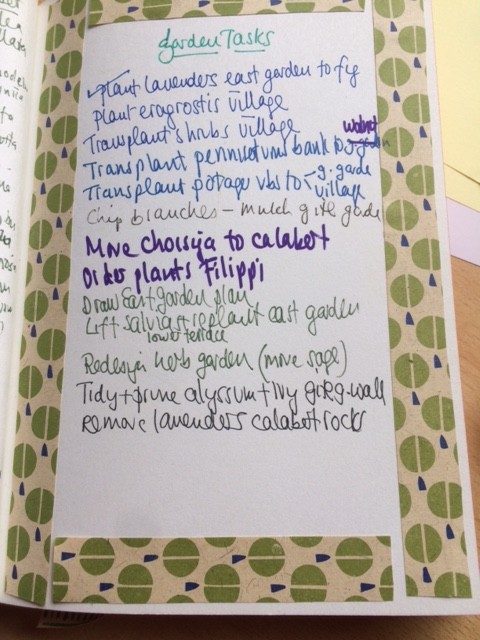 Garden Tasks
Plant lavenders east garden to fig
Plant eragrostis village
Transplant shrubs village
walnut
Transplant pennisetums bank to
Transplant potager vbs to - g. garde
village
Chip branches - mulch gîte garde
Move Choisya to calabert
Order plants Filippi
Draw East garden plan
Lift salvias + replant east garden
lower terrace
Redesign herb garden (move sage)
Tidy + prune alyssum + ivy wall
Remove lavenders calabert rocks